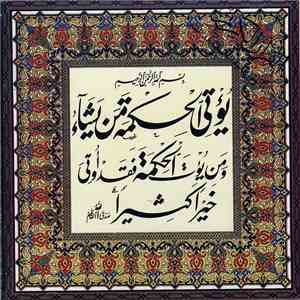 بسم الله الرحمن الرحيم
يؤتي الحكمة من يشاء
ومن يؤت الحكمة فقد أوتي
خيرا كثيرا